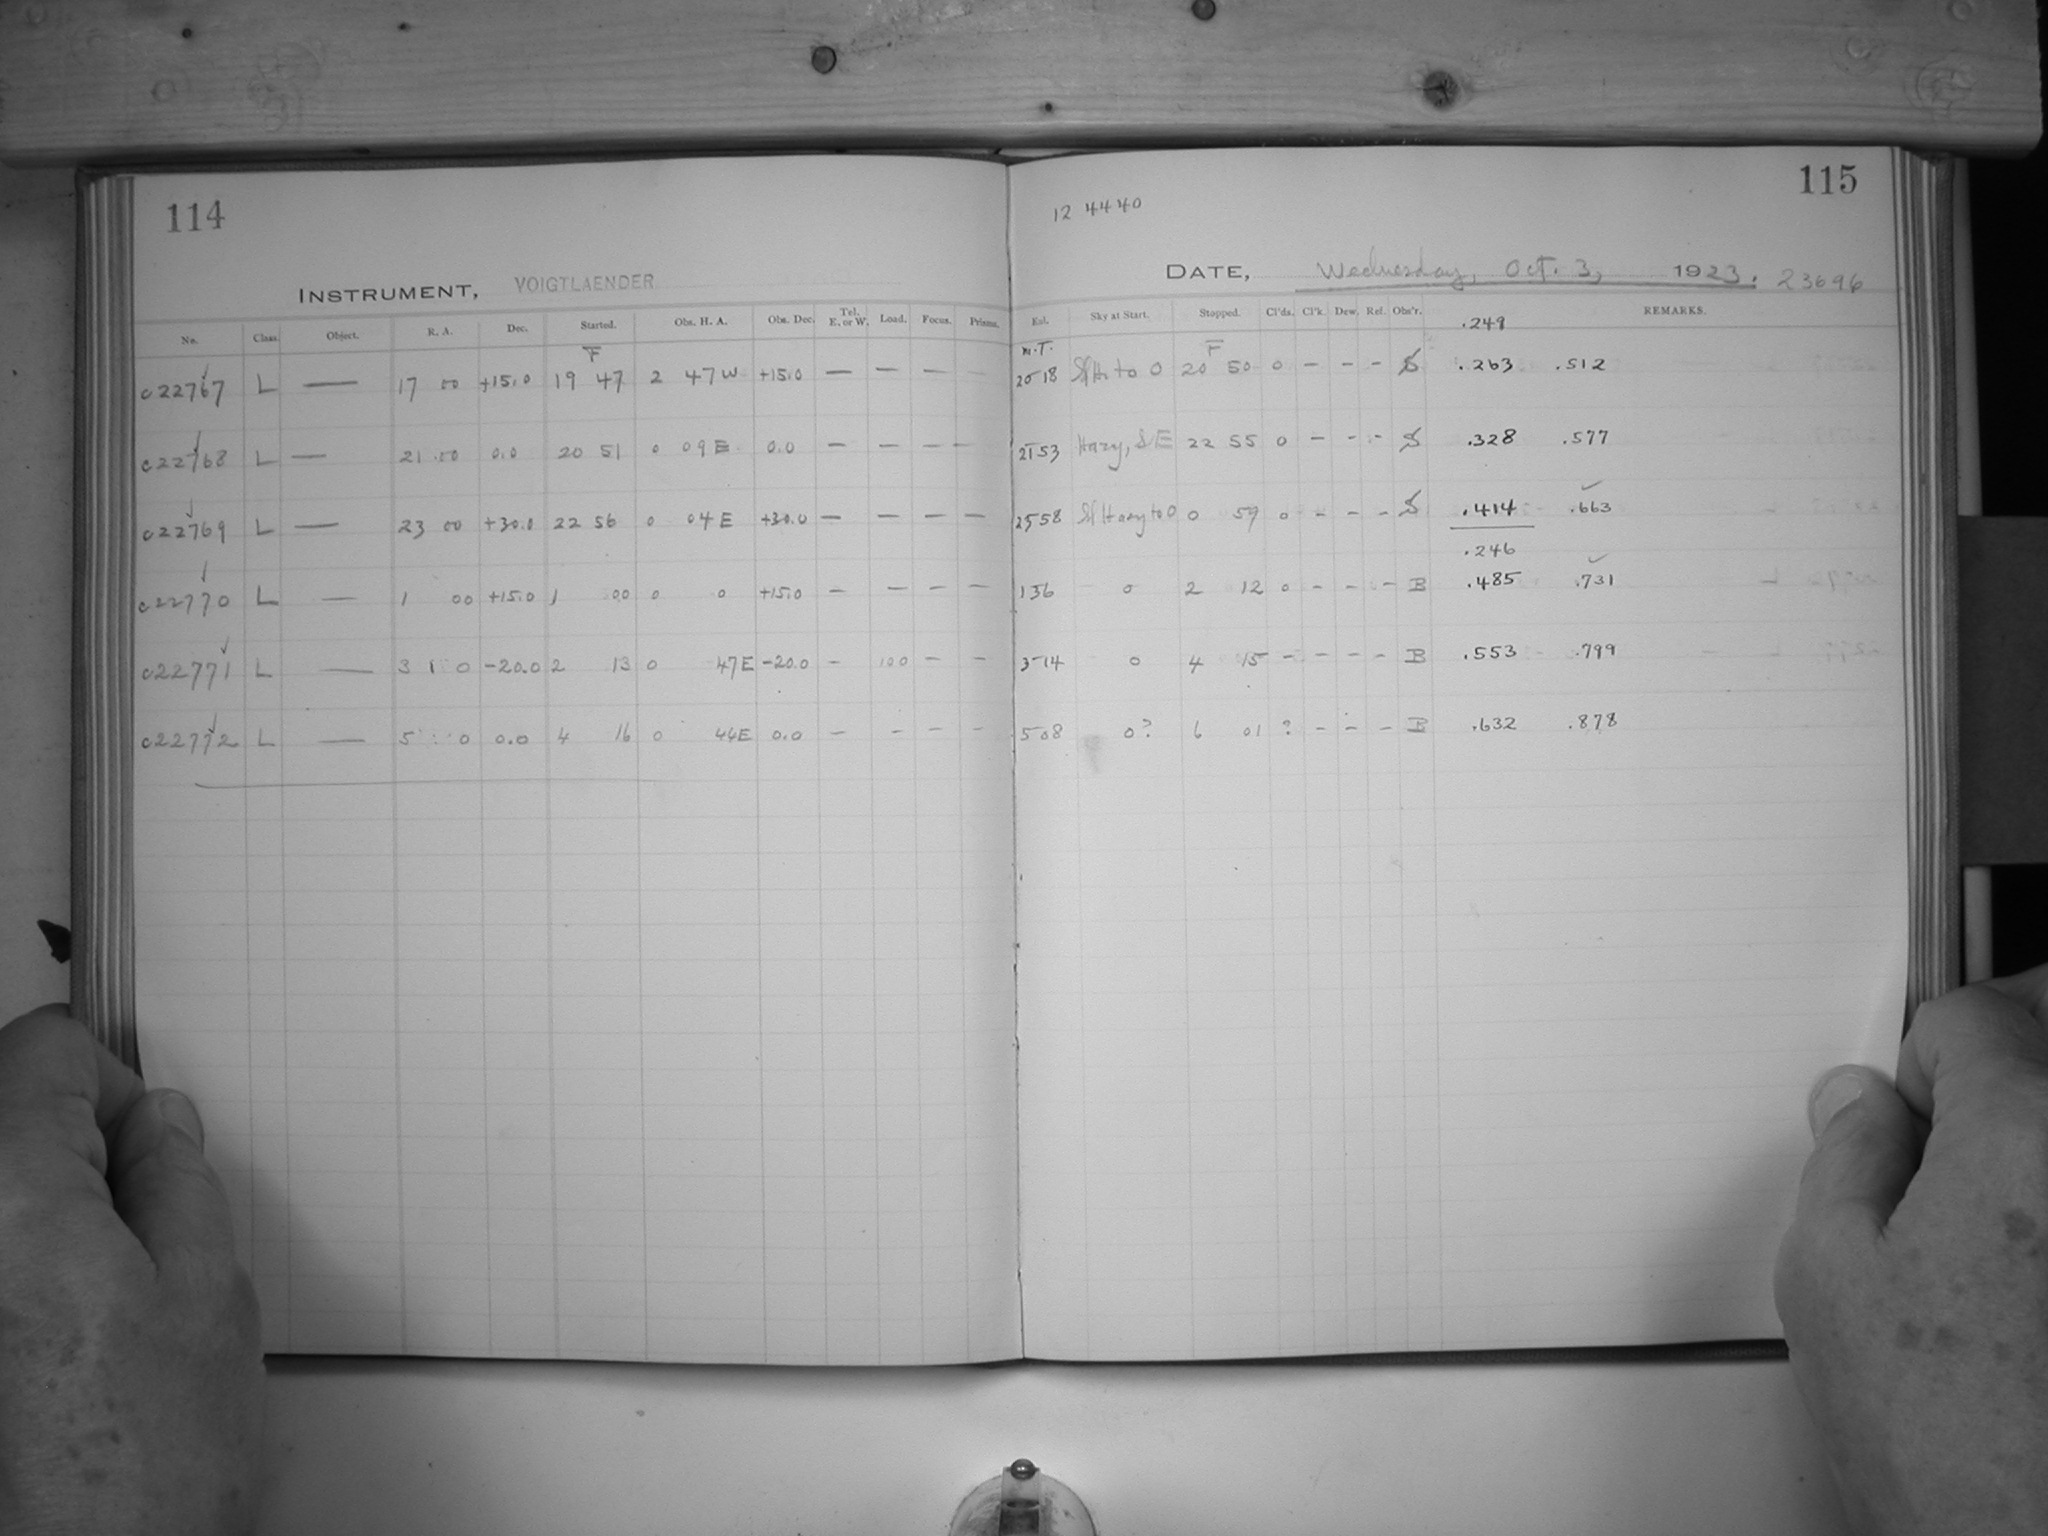 114
INSTRUMENT, VOIGTLAENDER
No. Class. Object. R. A. Dec. Started. Obs. H. A. Obs. Dec. Tel. E. or W. Load. Focus. Prisms.
F
c22767 L — 17 00 +15.0 19 47 2 47 W +15.0 — — — —
c22768 L — 21 00 0.0 20 51 0 09 E 0.0 — — — —
c22769 L — 23 00 +30.0 22 56 0 04 E +30.0 — — — —
c22770 L — 1 00 +15.0 1 00 0 0 +15.0 — — — —
c22771 L — 3 0 -20.0 2 13 0 47 E -20.0 — 100 — —
c22772 L — 5 0 0.0 4 16 0 44 E 0.0 — — — —
115
12 44 40
DATE, Wednesday, Oct. 3, 1923. 23696
Sky at Start. Stopped. Cl'ds. Cl'k. Dew. Ref. Obs'r. REMARKS.
.249
M.T. F
20 18 to 0 20 50 0 – – – S .263 .512
21 53 Hazy, S E 22 55 0 – – – S .328 .577
Hazy to 0 0 59 0 – – – S .414 .663
.246
1 36 0 2 12 0 – – – B .485 .731
3 14 0 4 15 – – – – B .553 .799
5 08 0? 6 01 ? – – – B .632 .878